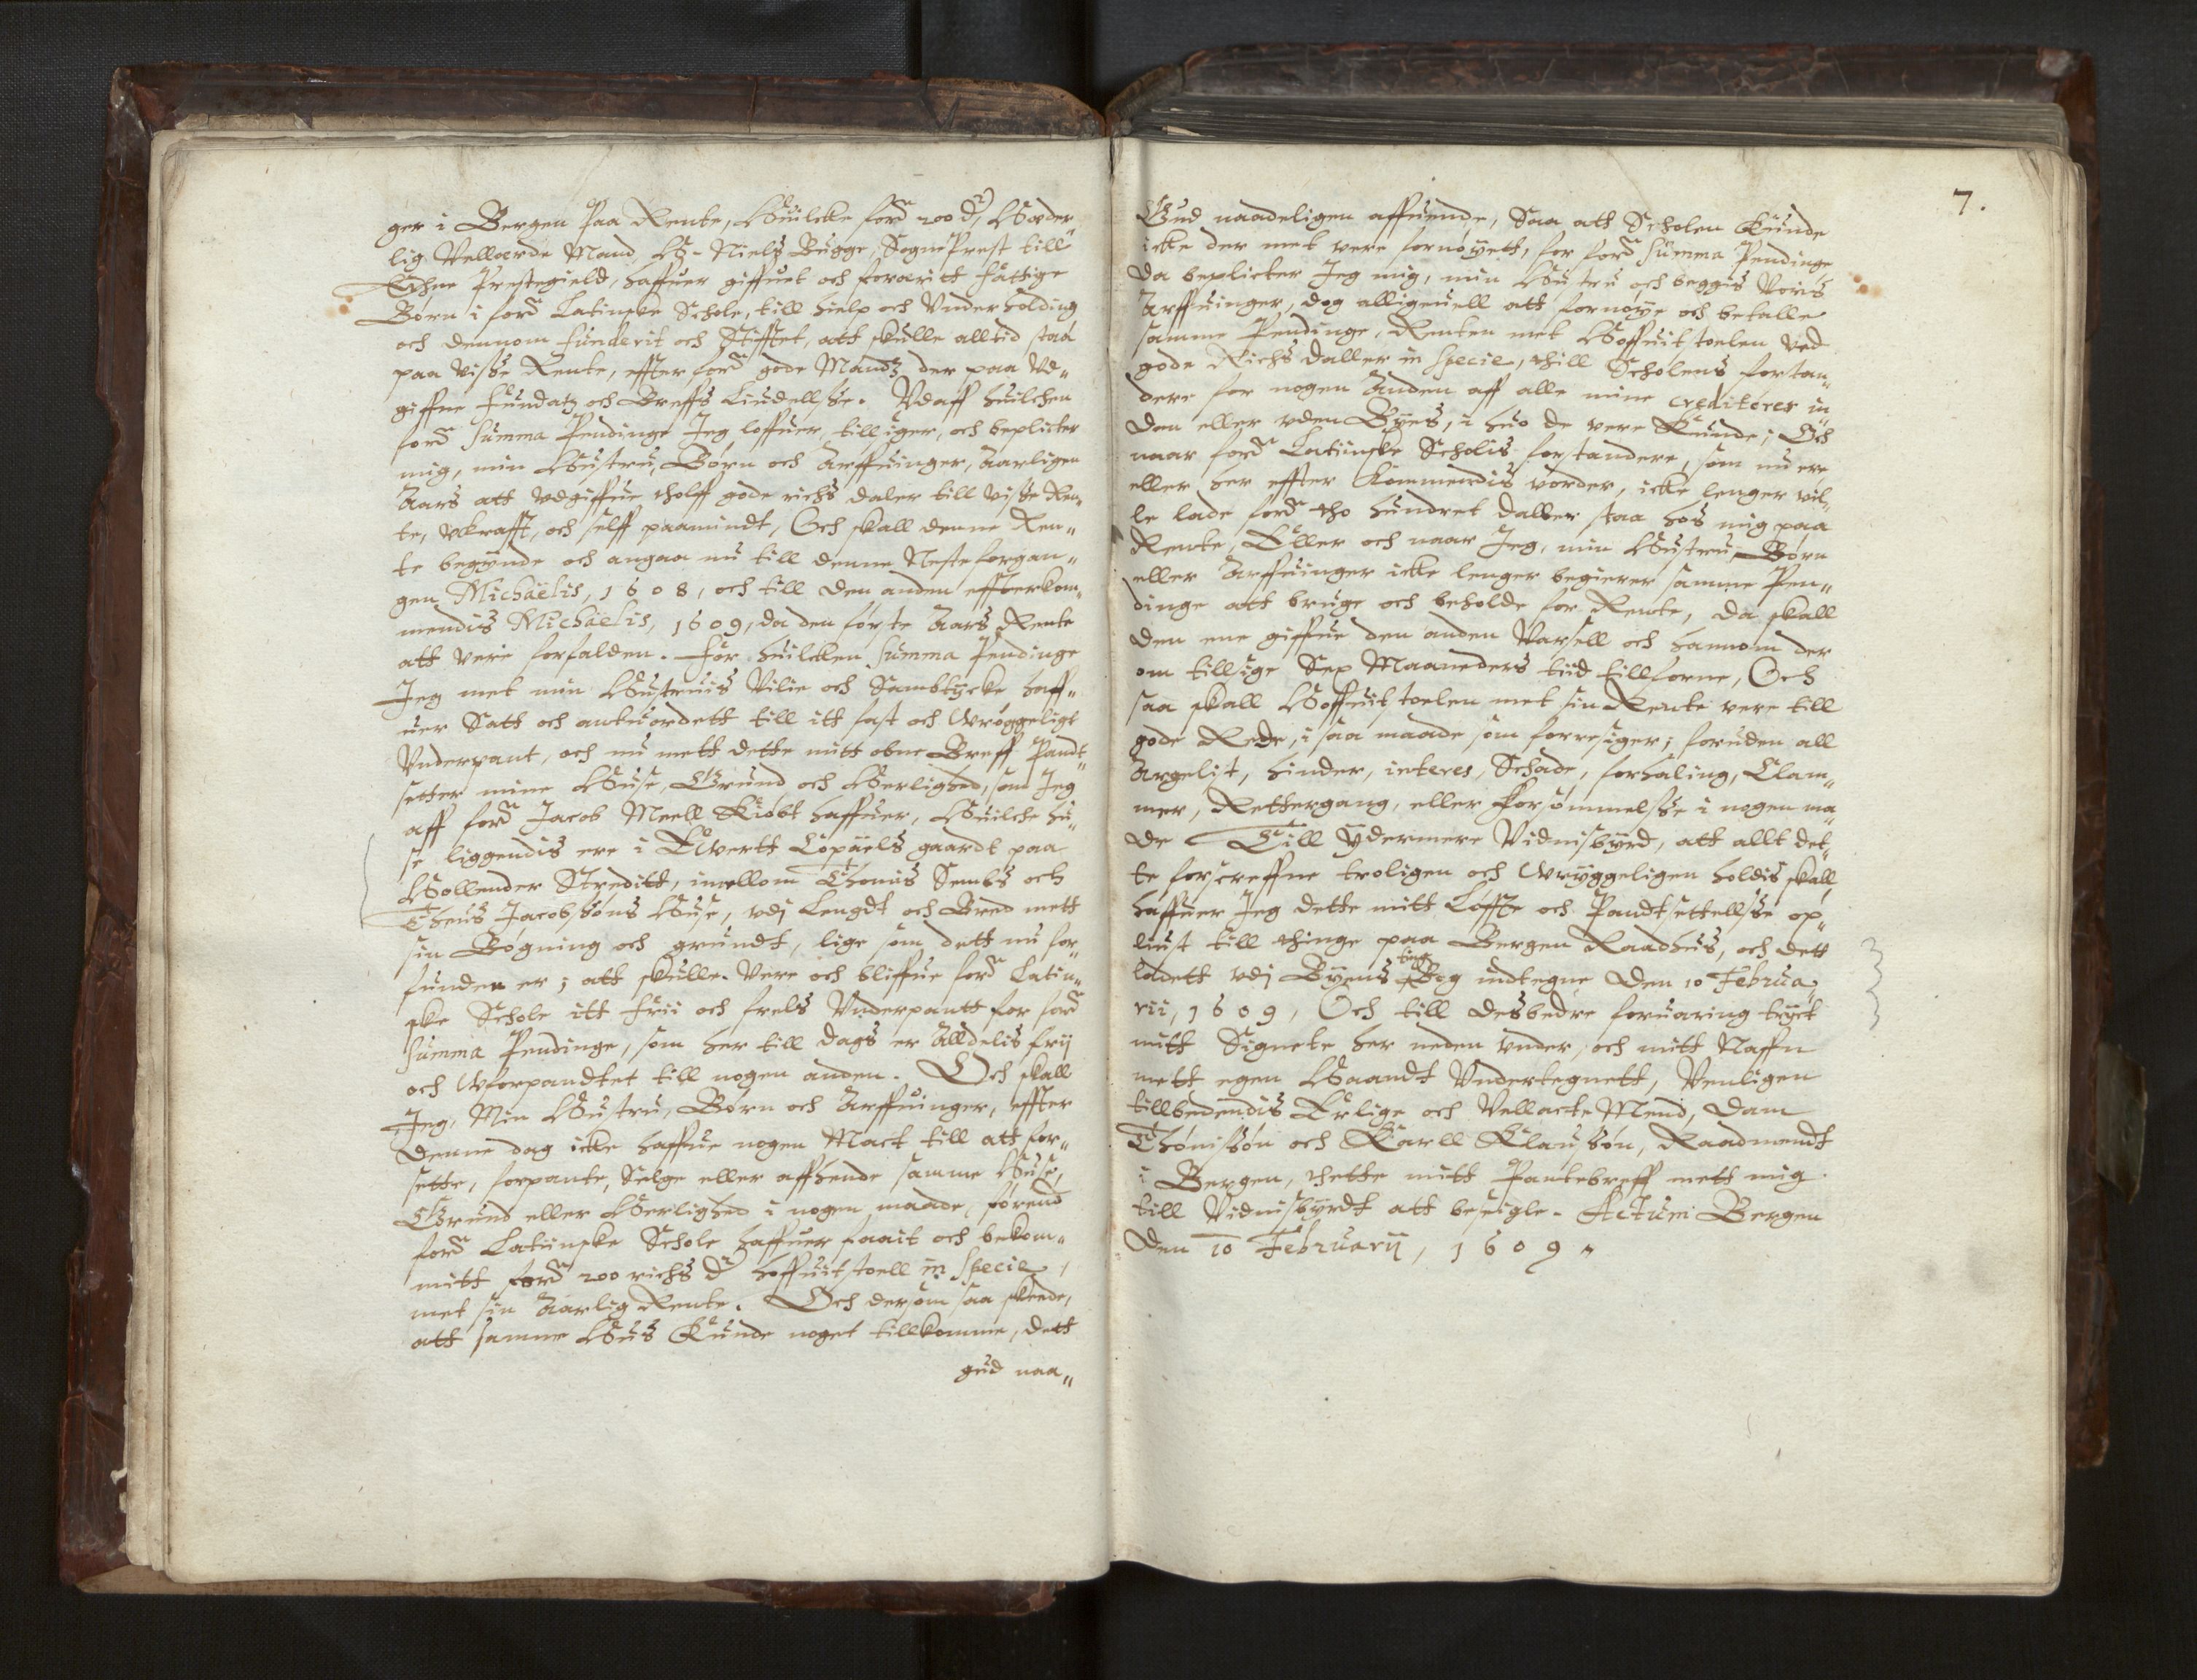 ger i Bergen Paa Rente, Huilcke ford 200 dr, Hæder
lig Vellærde Mand, H- Nielß Bugge Sogne Prest till
Eyhne Prestegield, haffuer giffuet och foræritt fattige
Børn i ford Latinske Schole, till hielp och Vnderholding
och dennom funderit och Stifftet, att skulle alltid staa
paa visse Rente, effter ford gode Mandz der paa Vd„
giffne fundatz och Breffs Liudellsse. Vdaff huilchen
ford Summa Pendinge Jeg loffuer, tillsiger, och beplicter
mig, min Hustru, Børn och Arffuinger, Aarligen
Aars att vdgiffue tholff gode richs daler till visse Ren„
te, vkrafft, och selff paamindt, Och skall denne Ren„
te begynde och angaa nu till denne Neste forgan„
gen Michaëlis, 1608, och till den anden effterkom„
mendis Michaëlis, 1609, da den første Aars Rente
att vere forfalden. For huilcken Summa Pendinge
Jeg met min Hustruis Vilie och Sambtycke haff„
uer Satt och antuordett till itt fast och Wrøggeligt
Vnderpant, och nu mett dette mitt obne Breff Pandt„
setter mine Huse, Grund och Herlighed, som Jeg
aff ford Jacob Meell Kiøbt haffuer, Huilche hu„
se liggendis ere i Evertt Copüels gaardt paa
Hollender Streditt, imellom Thonis Sembs och
Theus Jacobsøns Huse, vdj Lengdt och Bred mett
sin Bøgning och grundt, lige som dett nu for„
funden er; att skulle vere och bliffue ford Latin„
ske Schole itt frii och frels Vnderpantt for ford
Summa Pendinge, som her till dags er Alldelis frij
och Wforpandtet till nogen anden. Och skall
Jeg, Min Hustru, Børn och Arffuinger, effter
denne dag icke haffue nogen Mact till att for„
sette, forpante, Selge eller affhende samme Huse,
Grund eller Herlighed i nogen maade, førend
ford Latinske Schole haffuer faait och bekom„
mitt ford 200 richs dr hoffuitstoell in Specie,
met sin Aarlig Rente. Och dersom saa skeede,
att samme Hus Kunde noget tillkomme, dett
gud naa„
7.
Gud naadeligen affuende, Saa att Scholen Kunde
icke der met vere fornøyett, for ford Summa Pendinge
da beplicter Jeg mig, min Hustru och beggis Voris
Arffuinger, dog alligeuell att fornøye och betalle
samme Pendinge, Renten met Hoffuitstoelen Ved
gode Richs daller in Specie, thill Scholens forstan„
dere for nogen Anden aff alle mine creditorer in„
den eller vden Byes, i huo de vere Kunde; Och
naar ford Latinske Scholis forstandere, som nu ere
eller her effter Kommendis vorder, icke lenger vil„
le lade ford tho hundret daller staa hos mig paa
Rente, Eller och naar Jeg, min Hustru, Børn
eller Arffuinger icke lenger begierer samme Pen„
dinge att bruge och beholde for Rente, da skall
den ene giffue den anden Varsell och hannom der
om tillsige Sex Maaneders tiid tillforne, Och
saa skall Hoffuitstoelen met sin Rente vere till
gode Rede, i saa maade som forresiger; foruden all
Argelist, hinder, interes, Schade, forhaling, Clam„
mer, Rettergang, eller Forsømmelsse i nogen ma„
de Till ydermere Vidnisbyrd, att allt det„
te forscreffne troligen och Wryggeligen holdis skall,
haffuer Jeg dette mitt Løffte och Pandtsettellsse op„
liust till thinge paa Bergen Raadhus, och dett
ladett vdj Byens ting Bog indtegne den 10 Februa„
rii, 1609, Och till desbedre foruaring tryct
mitt Signete her neden vnder, och mitt Naffn
mett egen Haandt Vndertegnett, Venligen
tillbedendis Erlige och Vellacte Mend, Dam
Thønissøn och Karll Klaussøn, Raadmendt
i Bergen, thette mitt Pantebreff mett mig
till Vidnisbyrdt att beseigle. Actum Bergen
Den 10 Februarij, 1609.